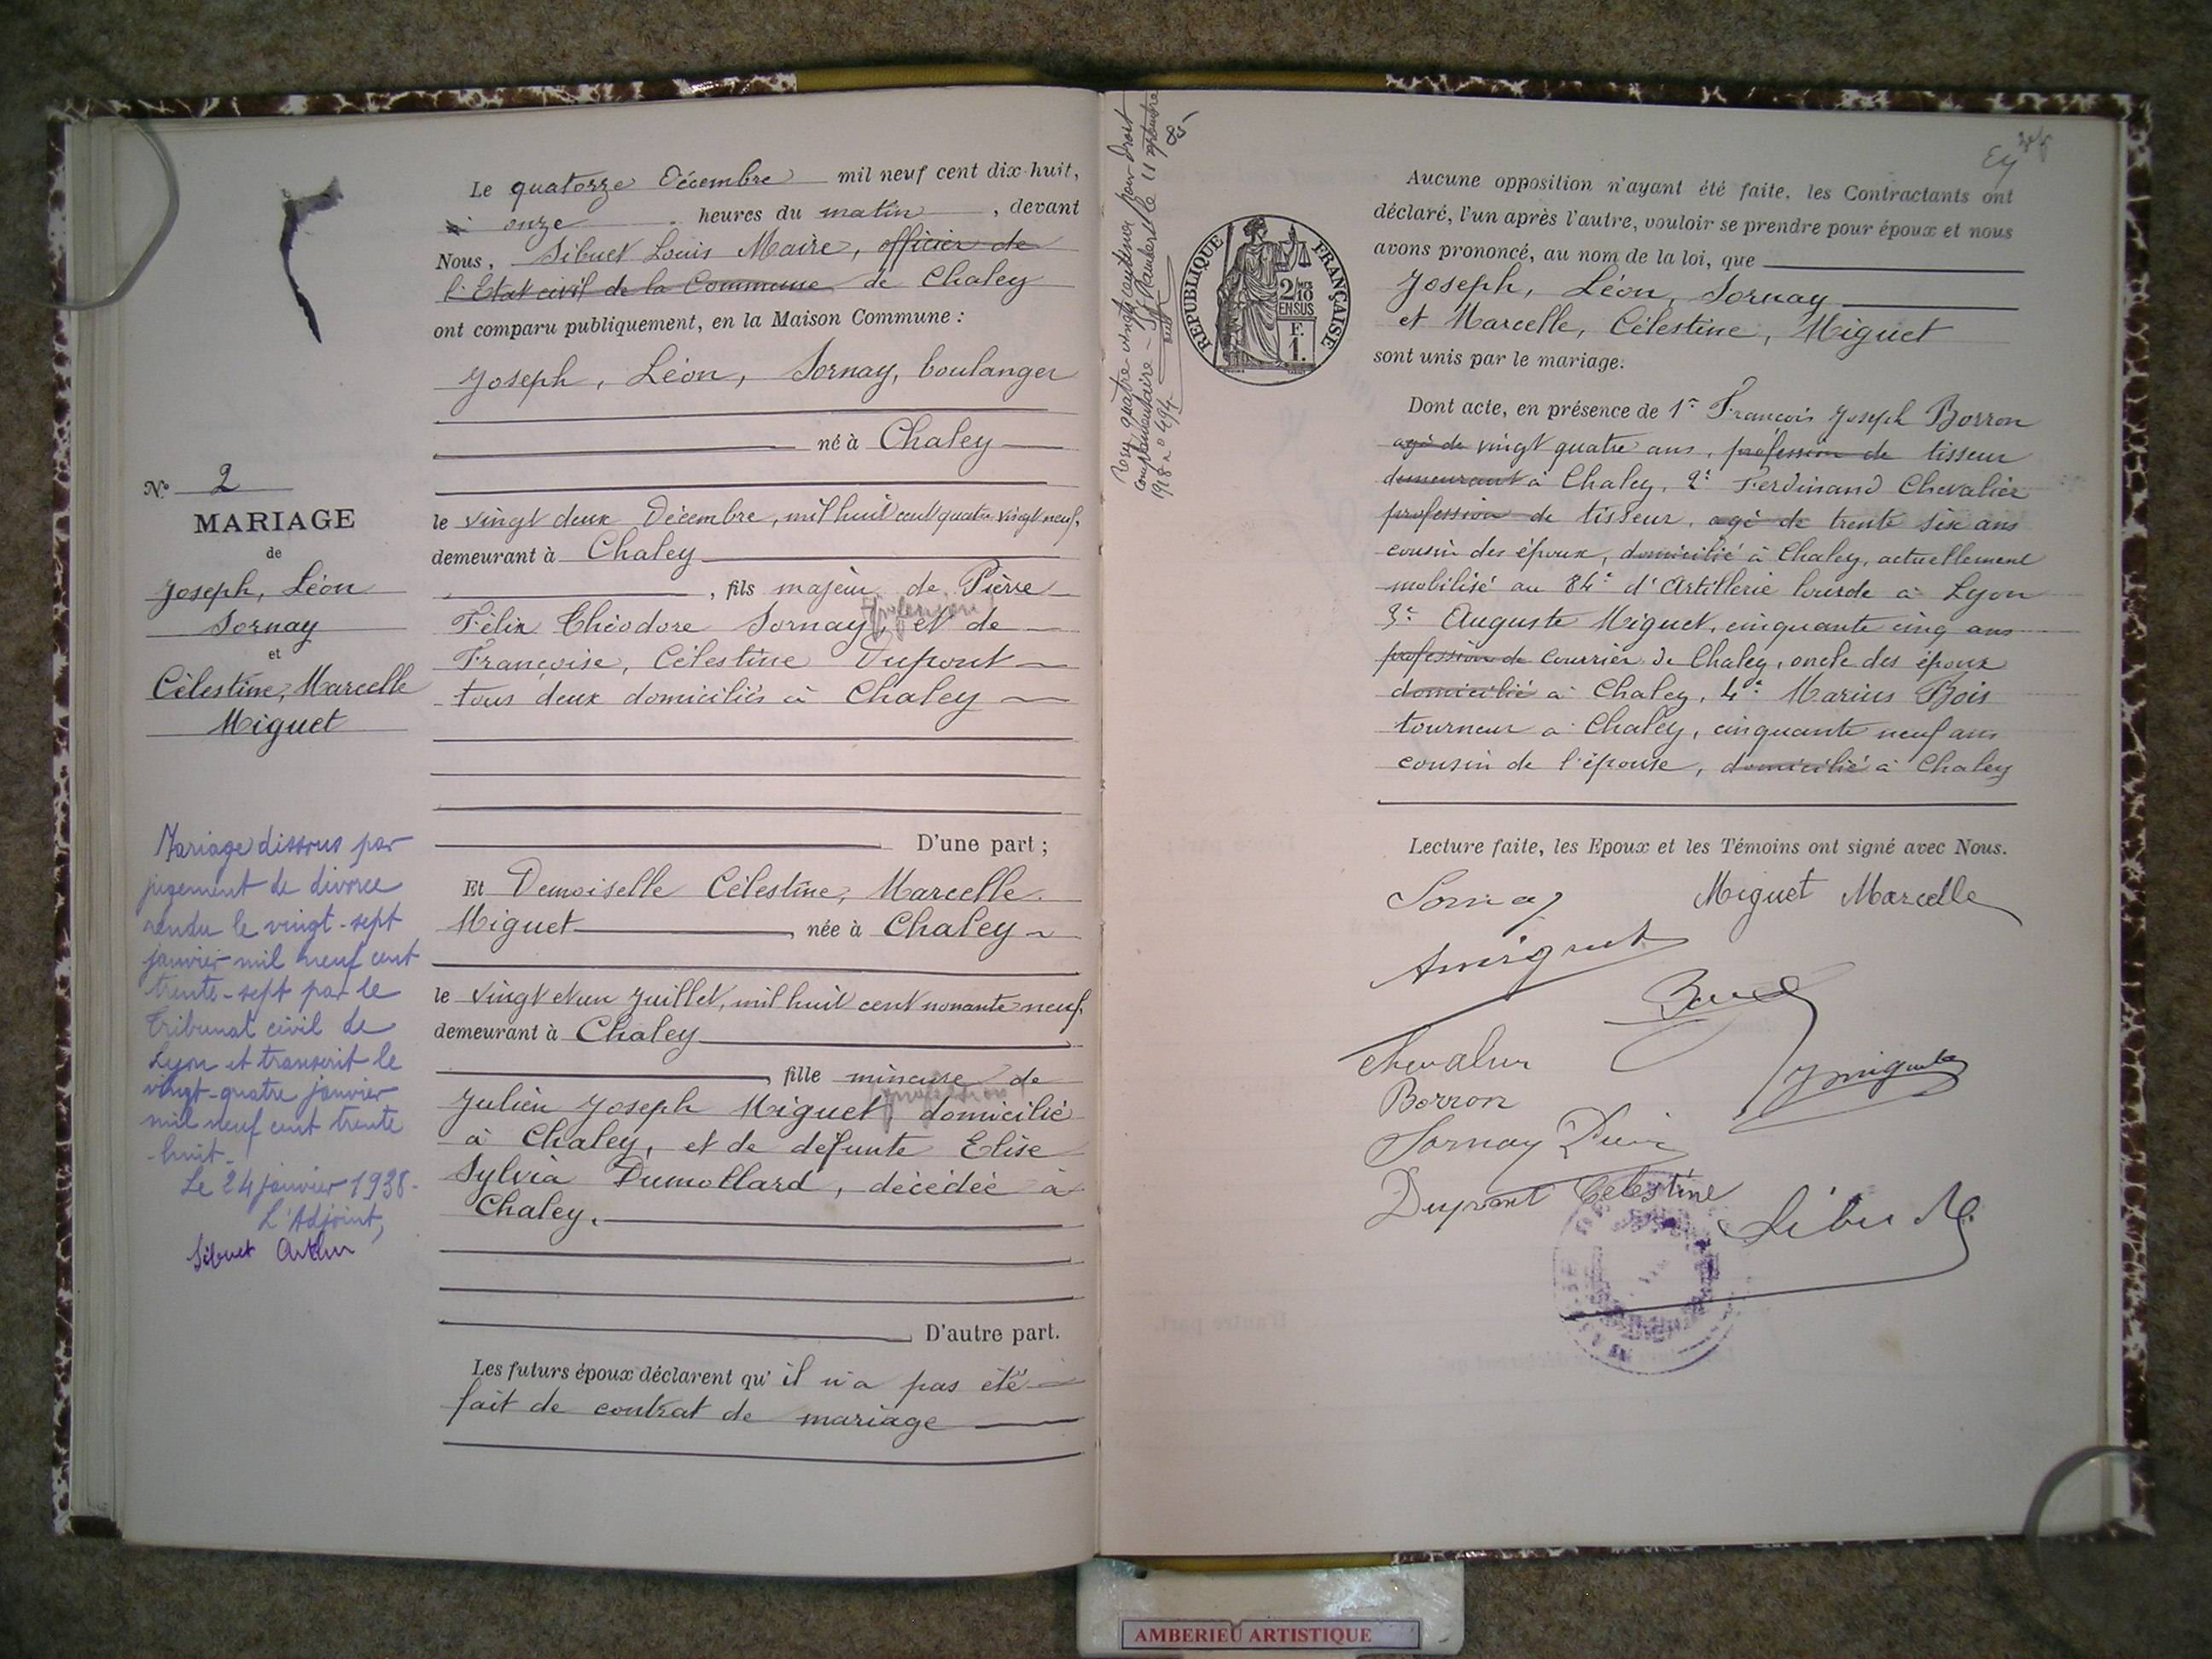 Le quatorze Décembre mil neuf cent dix-huit,
à onze heures du matin, devant
Nous, Sibuet Louis Maire, officier de
l'Etat civil de la Commune de Chaley
ont comparu publiquement, en la Maison Commune :
Joseph, Léon, Sornay, boulanger
né à Chaley
le vingt deux Décembre, mil huit cent quatre vingt neuf,
demeurant à Chaley
, fils majeur de Pierre
Félix Théodore Sornay, et de
Françoise, Célestine Dupont
tous deux domiciliés à Chaley
D'une part ;
Et Demoiselle Célestine, Marcelle
Miguet, née à Chaley
le vingt et un Juillet, mil huit cent nonante neuf,
demeurant à Chaley
, fille mineure de
profession
Julien Joseph Miguet domicilié
à Chaley, et de défunte Elise
Sylvia Dumollard, décédée à
Chaley.
D'autre part.
Les futurs époux déclarent qu'il n'a pas été
fait de contrat de mariage
N° 2
MARIAGE
de
Joseph, Léon
Sornay
et
Célestine, Marcelle
Miguet
Mariage dissous par
jugement de divorce
rendu le vingt-sept
janvier mil neuf cent
trente-sept par le
Tribunal civil de
Lyon et transcrit le
vingt-quatre janvier
mil neuf cent trente
-huit-
Le 24 janvier 1938.
L'Adjoint,
Sibuet Arthur
RÉPUBLIQUE FRANÇAISE
2/10
EN SUS
F.
1.
Aucune opposition n'ayant été faite, les Contractants ont
déclaré, l'un après l'autre, vouloir se prendre pour époux et nous
avons prononcé, au nom de la loi, que
Joseph, Léon, Sornay
et Marcelle, Célestine, Miguet
sont unis par le mariage.
Dont acte, en présence de 1° François Joseph Borron
agé de vingt quatre ans, profession de tisseur
demeurant à Chaley, 2° Ferdinand Chevalier
profession de tisseur, agé de trente six ans
cousin des époux, domicilié à Chaley, actuellement
mobilisé au 84e d'Artillerie lourde à Lyon
3° Auguste Miguet, cinquante cinq ans
profession de courrier de Chaley, oncle des époux
domicilié à Chaley, 4° Marius Bois
tourneur à Chaley, cinquante neuf ans
cousin de l'épouse, domicilié à Chaley
Lecture faite, les Epoux et les Témoins ont signé avec Nous.
Sornay Miguet Marcelle
Amiguet
Chevalier
Borron
Jmiguet
Sornay
Dupont Célestine
Sibuet
AMBERIEU ARTISTIQUE